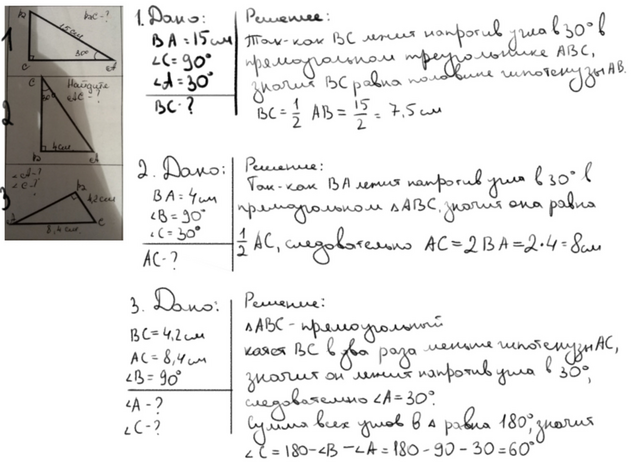 1
B
BC-?
15см
30°
C
A
2
C
Найдите
AC-?
30°
B
4см
A
3
∠A-?
∠C-?
B
4,2см
C
8,4см
1. Дано:
BA=15см
∠C=90°
∠A=30°
BC-?
Решение:
Так-как BC лежит напротив угла в 30° в
прямогольном треугольнике ABC,
значит BC равна половине гипотенузы AB.
BC=1/2 AB=15/2=7,5см
2. Дано:
BA=4см
∠B=90°
∠C=30°
AC-?
Решение:
Так-как BA лежит напротив угла в 30° в
прямогольном ΔABC, значит она равна
1/2 AC, следовательно AC=2BA=2·4=8см
3. Дано:
BC=4,2см
AC=8,4см
∠B=90°
∠A-?
∠C-?
Решение:
ΔABC-прямоугольный
катет BC в два раза меньше гипотенузы AC,
значит он лежит напротив угла в 30°,
следовательно ∠A=30°.
Сумма всех углов в Δ равна 180°, значит
∠C=180-∠B-∠A=180-90-30=60°